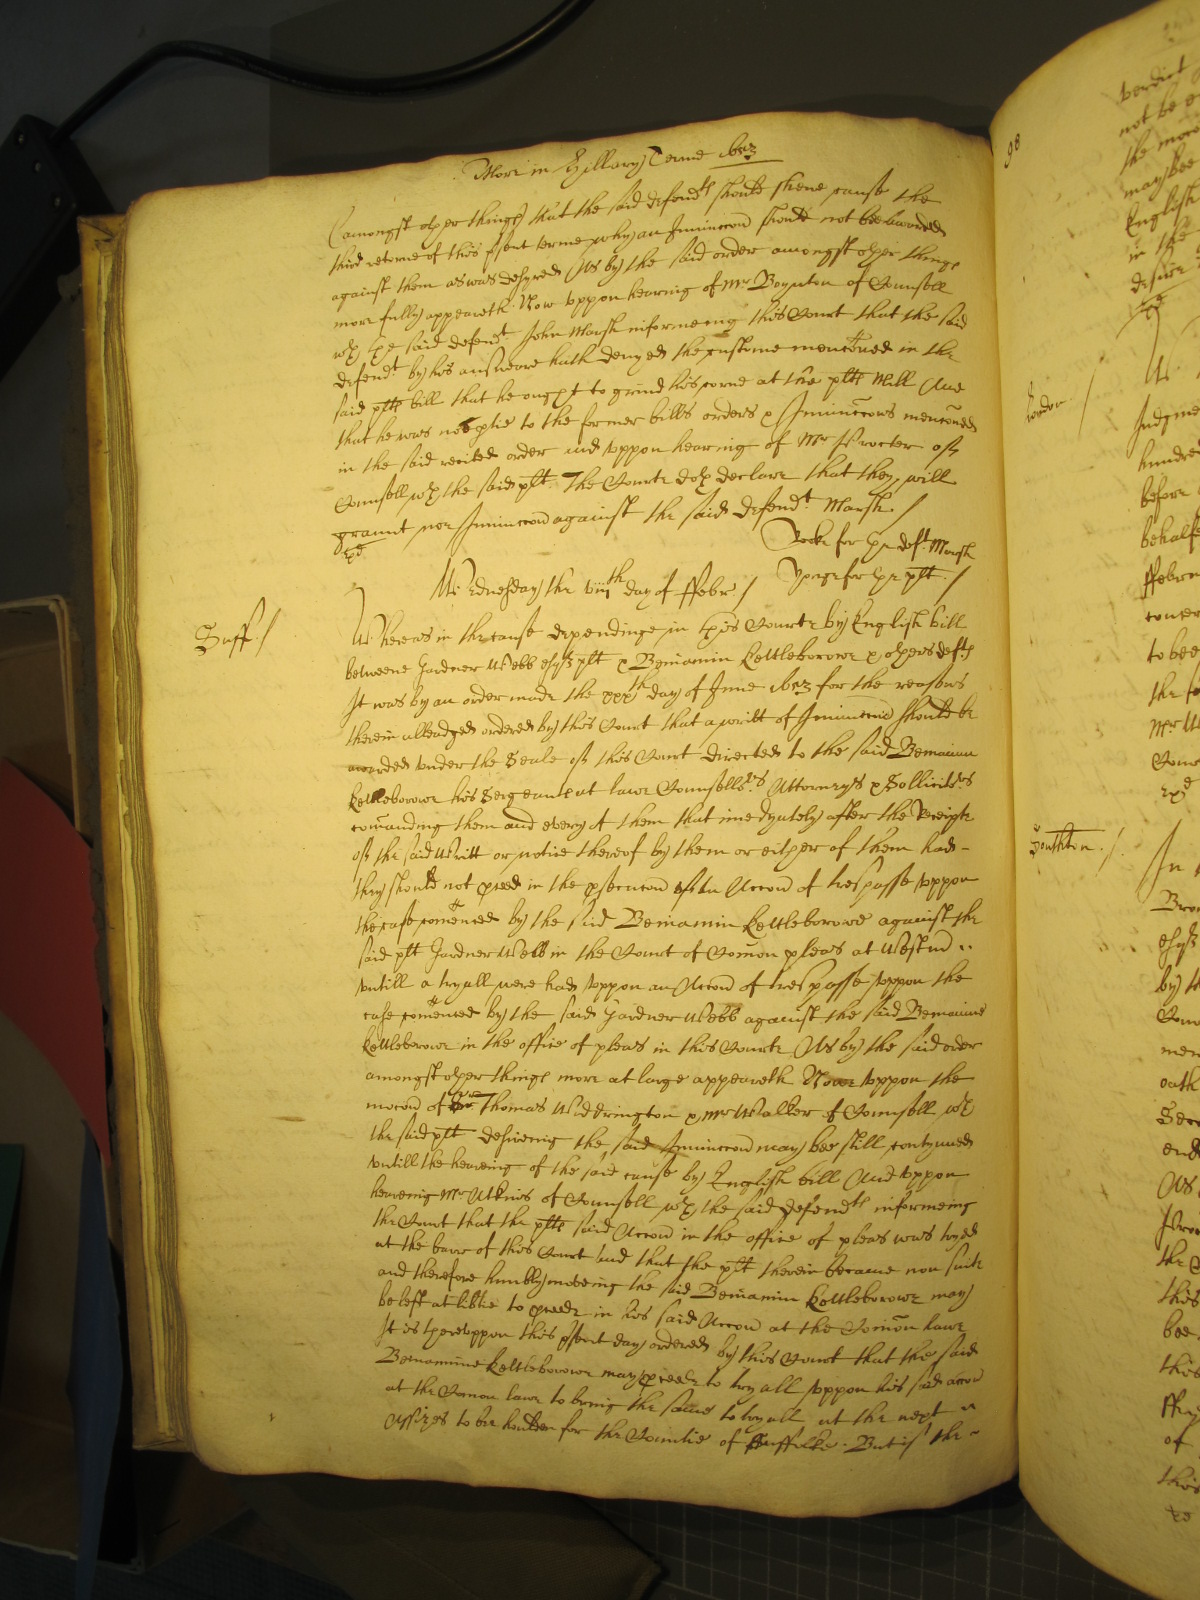 More in Hillary Terme 1653
(amongst other things) that the said defendts should shewe cause the
third retorne of this psent terme why an Iniunccon should not bee awarded
against them as was desyred As by the said order amongst other things
more fully appeareth. Now uppon hearing of Mr Boynton of Counsell
wth the said defendt John Marsh informeing this Court that the said
defendt by his answeare hath denyed the custome menconed in the
said plts bill that he ought to grind his corne at the plts Mill And
that he was noe ptie to the former bills orders & Iniunccons menconed
in the said recited order and uppon hearing of Mr Procter of
Counsell wth the said plt The Court doth declare that they will
graunt noe Iniunccon against the said defendt Marsh /
for the deft Marsh
for the plt /
Wednesday the viiith day of ffebr /
Suff. /
Whereas in the cause dependinge in this Courte by English bill
betweene Gardner Webb esqr plt & Beniamin Kettleborowe & others defts
It was by an order made the xxxth day of June 1653 for the reasons
therein alleadged ordered by this Court that a writt of Iniunccon should be
awarded under the Seale of this Court directed to the said Beniamin
Kettleborowe his Sergeants at lawe Counsellrs Attorneys & Sollicitrs
comanding them and every of them that imediately after the Receipte
of the said Writt or notice thereof by them or either of them had
they should not pceed in the psecucon of an Accon of trespasse uppon
the case comenced by the said Beniamin Kettleborowe against the
said plt Gardner Webb in the Court of Comon pleas at Westmr ..
untill a tryall were had uppon an Accon of trespasse uppon the
case comenced by the said Gardner Webb against the said Beniamine
Kettleborowe in the office of pleas in this Courte As by the said order
amongst other things more at large appeareth Now uppon the
mocon of Sr Thomas Widdrington & Mr Walker of Counsell wth
the said plt desireing the said Iniunccon may bee still contynued
untill the heareing of the said cause by English bill And uppon
heareing Mr Atkins of Counsell wth the said defendts informeing
the Court that the plts said Accon in the office of pleas was tryed
at the barr of this Court and that the plt therein became non suite
and therefore humbly moveing the said Beniamin Kettleborowe may
be left at libtie to pceede in his said Accon at the Comon lawe
It is thereuppon this psent day ordered by this Court that the said
Beniamine Kettleborowe may pceede to tryall uppon his said accon
at the Comon lawe to bring the same to tryall at the next
Assizes to bee houlden for the Countie of Suffolke. But if the
98
verdict
not be
the
may bee
English
in the
desire
London
Judgme
hundre
before
behalf
ffebru
concer
to bee
the
Mr
Coun
Southton. /
In
Bro
esqr
by
Com
men
oath
Sec
end
As
the
this
bee
this
of
this